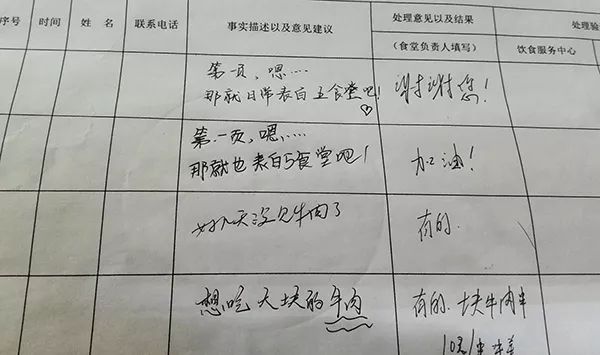 序号 时间 姓 名 联系电话 事实描述以及意见建议 处理意见以及结果 处理验
（食堂负责人填写） 饮食服务中心
第一页，嗯……
那就日常表白五食堂吧！♡
谢谢您！
第一页，嗯……
那就也表白5食堂吧！
加油！
好几天没见牛肉了
有的.
想吃大块的牛肉
有的. 块牛肉